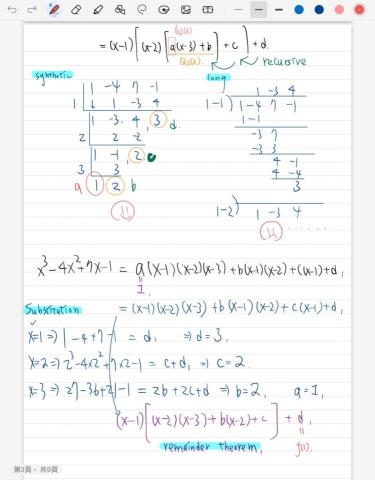 Q₁(x)
= (x-1) [ (x-2) [ a(x-3) + b ] + c ] + d.
Q₂(x).
recursive
synthetic
long
1 -4 7 -1
1 1 -3 4
1 -3 4, 3 d
2 2 -2
1 -1, 2 c
3 3
a 1 2 b
1 -3 4
1-1 ) 1 -4 7 -1
1 -1
-3 7
-3 3
4 -1
4 -4
3
1-2 ) 1 -3 4
......
x³-4x²+7x-1 = a(x-1)(x-2)(x-3)+b(x-1)(x-2)+c(x-1)+d,
1.
= (x-1)(x-2)(x-3)+b(x-1)(x-2)+c(x-1)+d,
Substitution
x=1 ⇒ 1-4+7-1 = d, ⇒ d=3.
x=2 ⇒ 2³-4x2²+7x2-1 = c+d, ⇒ c=2.
x=3 ⇒ 27-36+21-1 = 2b+2c+d ⇒ b=2, a=1,
(x-1) [ (x-2)(x-3)+b(x-2)+c ] + d,
remainder theorem,
f(1).
第3頁，共9頁